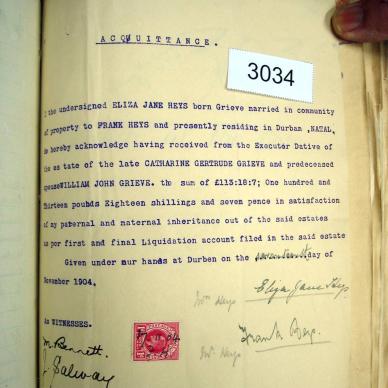 ACQUITTANCE.
3034
I the undersigned ELIZA JANE HEYS born Grieve married in community
of property to FRANK HEYS and presently residing in Durban ,NATAL,
do hereby acknowledge having received from the Executor Dative of
the estate of the late CATHARINE GERTRUDE GRIEVE and predeceased
spouseWILLIAM JOHN GRIEVE. the sum of £113:18:7; One hundred and
Thirteen pounds Eighteen shillings and seven pence in satisfaction
of my paternal and maternal inheritance out of the said estates
as per first and final Liquidation account filed in the said estate
Given under our hands at Durban on the seventeenth day of
November 1904.
Eliza Jane Heys
AS WITNESSES.
Frank Heys.
M. Bennett.
J. Galway